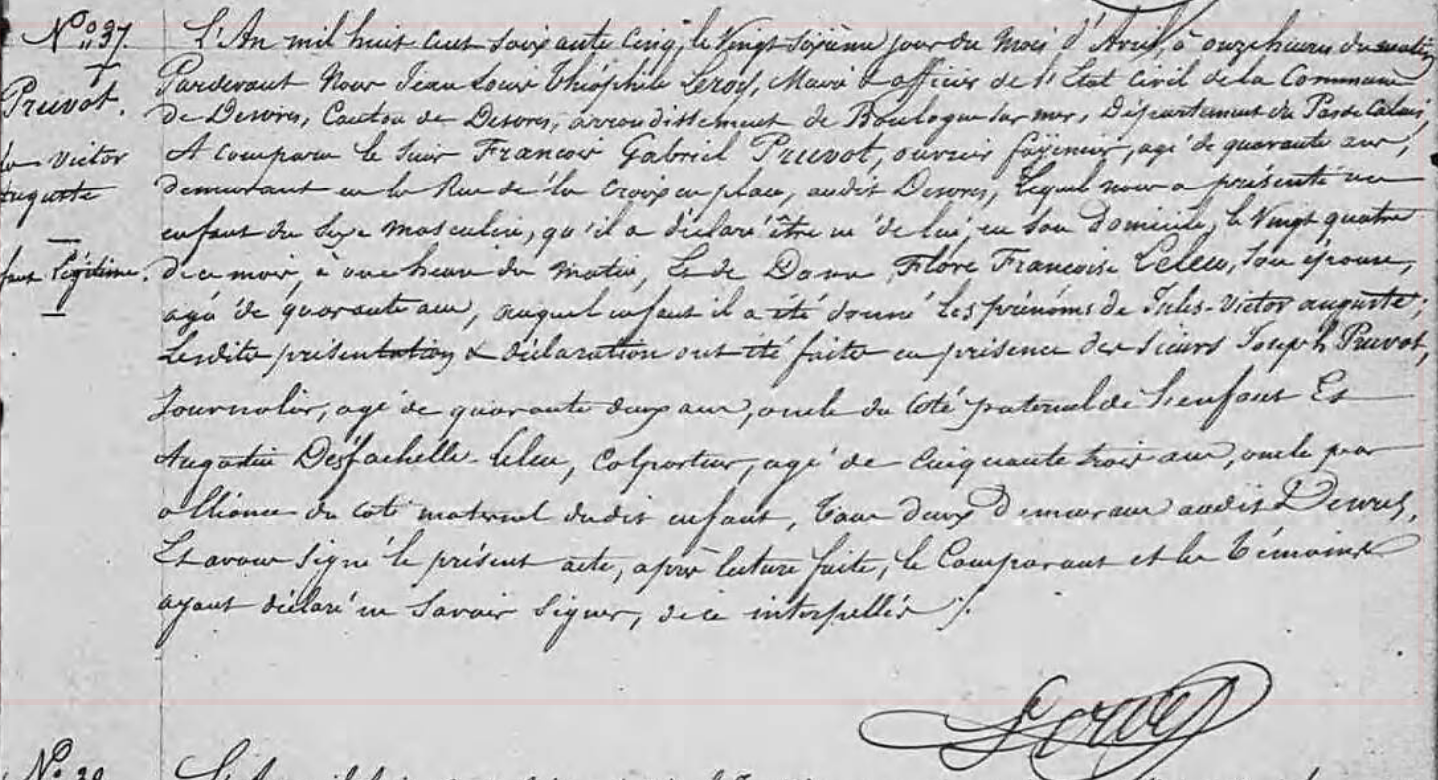 N° 37.
Pruvot.
Victor
Auguste
Légitime.
L'An mil huit cent soixante cinq, le Vingt sixième jour du mois d'Avril, à onze heures du matin
Pardevant Nous Jean Louis Théophile Leroy, Maire & officier de l'Etat Civil de la Commune
de Desvres, Canton de Desvres, arrondissement de Boulogne sur mer, Département du Pas de Calais,
A comparu le sieur Francois Gabriel Pruvot, ouvrier fayencier, agé de quarante ans,
demeurant en la Rue de la Croix en place, audit Desvres, Lequel nous a présenté un
enfant du Sexe Masculin, qu'il a déclaré être né de lui, en son Domicile, le Vingt quatre
de ce mois, à une heure du matin, & de Dame Flore Francoise Leleu, son épouse,
agée de quarante ans, auquel enfant il a été donné les prénoms de Jules-Victor auguste;
Lesdites présentation & déclaration ont été faites en présence des sieurs Joseph Pruvot,
Journalier, agé de quarante deux ans, oncle du coté paternel de l'enfant Et
Augustin Desfachelle-Leleu, Colporteur, agé de cinquante trois ans, oncle par
alliance du coté maternel dudit enfant, Tous deux Demeurans audit Desvres,
Et avons signé le présent acte, après lecture faite, le Comparant et les Témoins
ayant déclaré ne savoir signer, de ce interpellés ./.
Leroy
N° 38
L'An mil